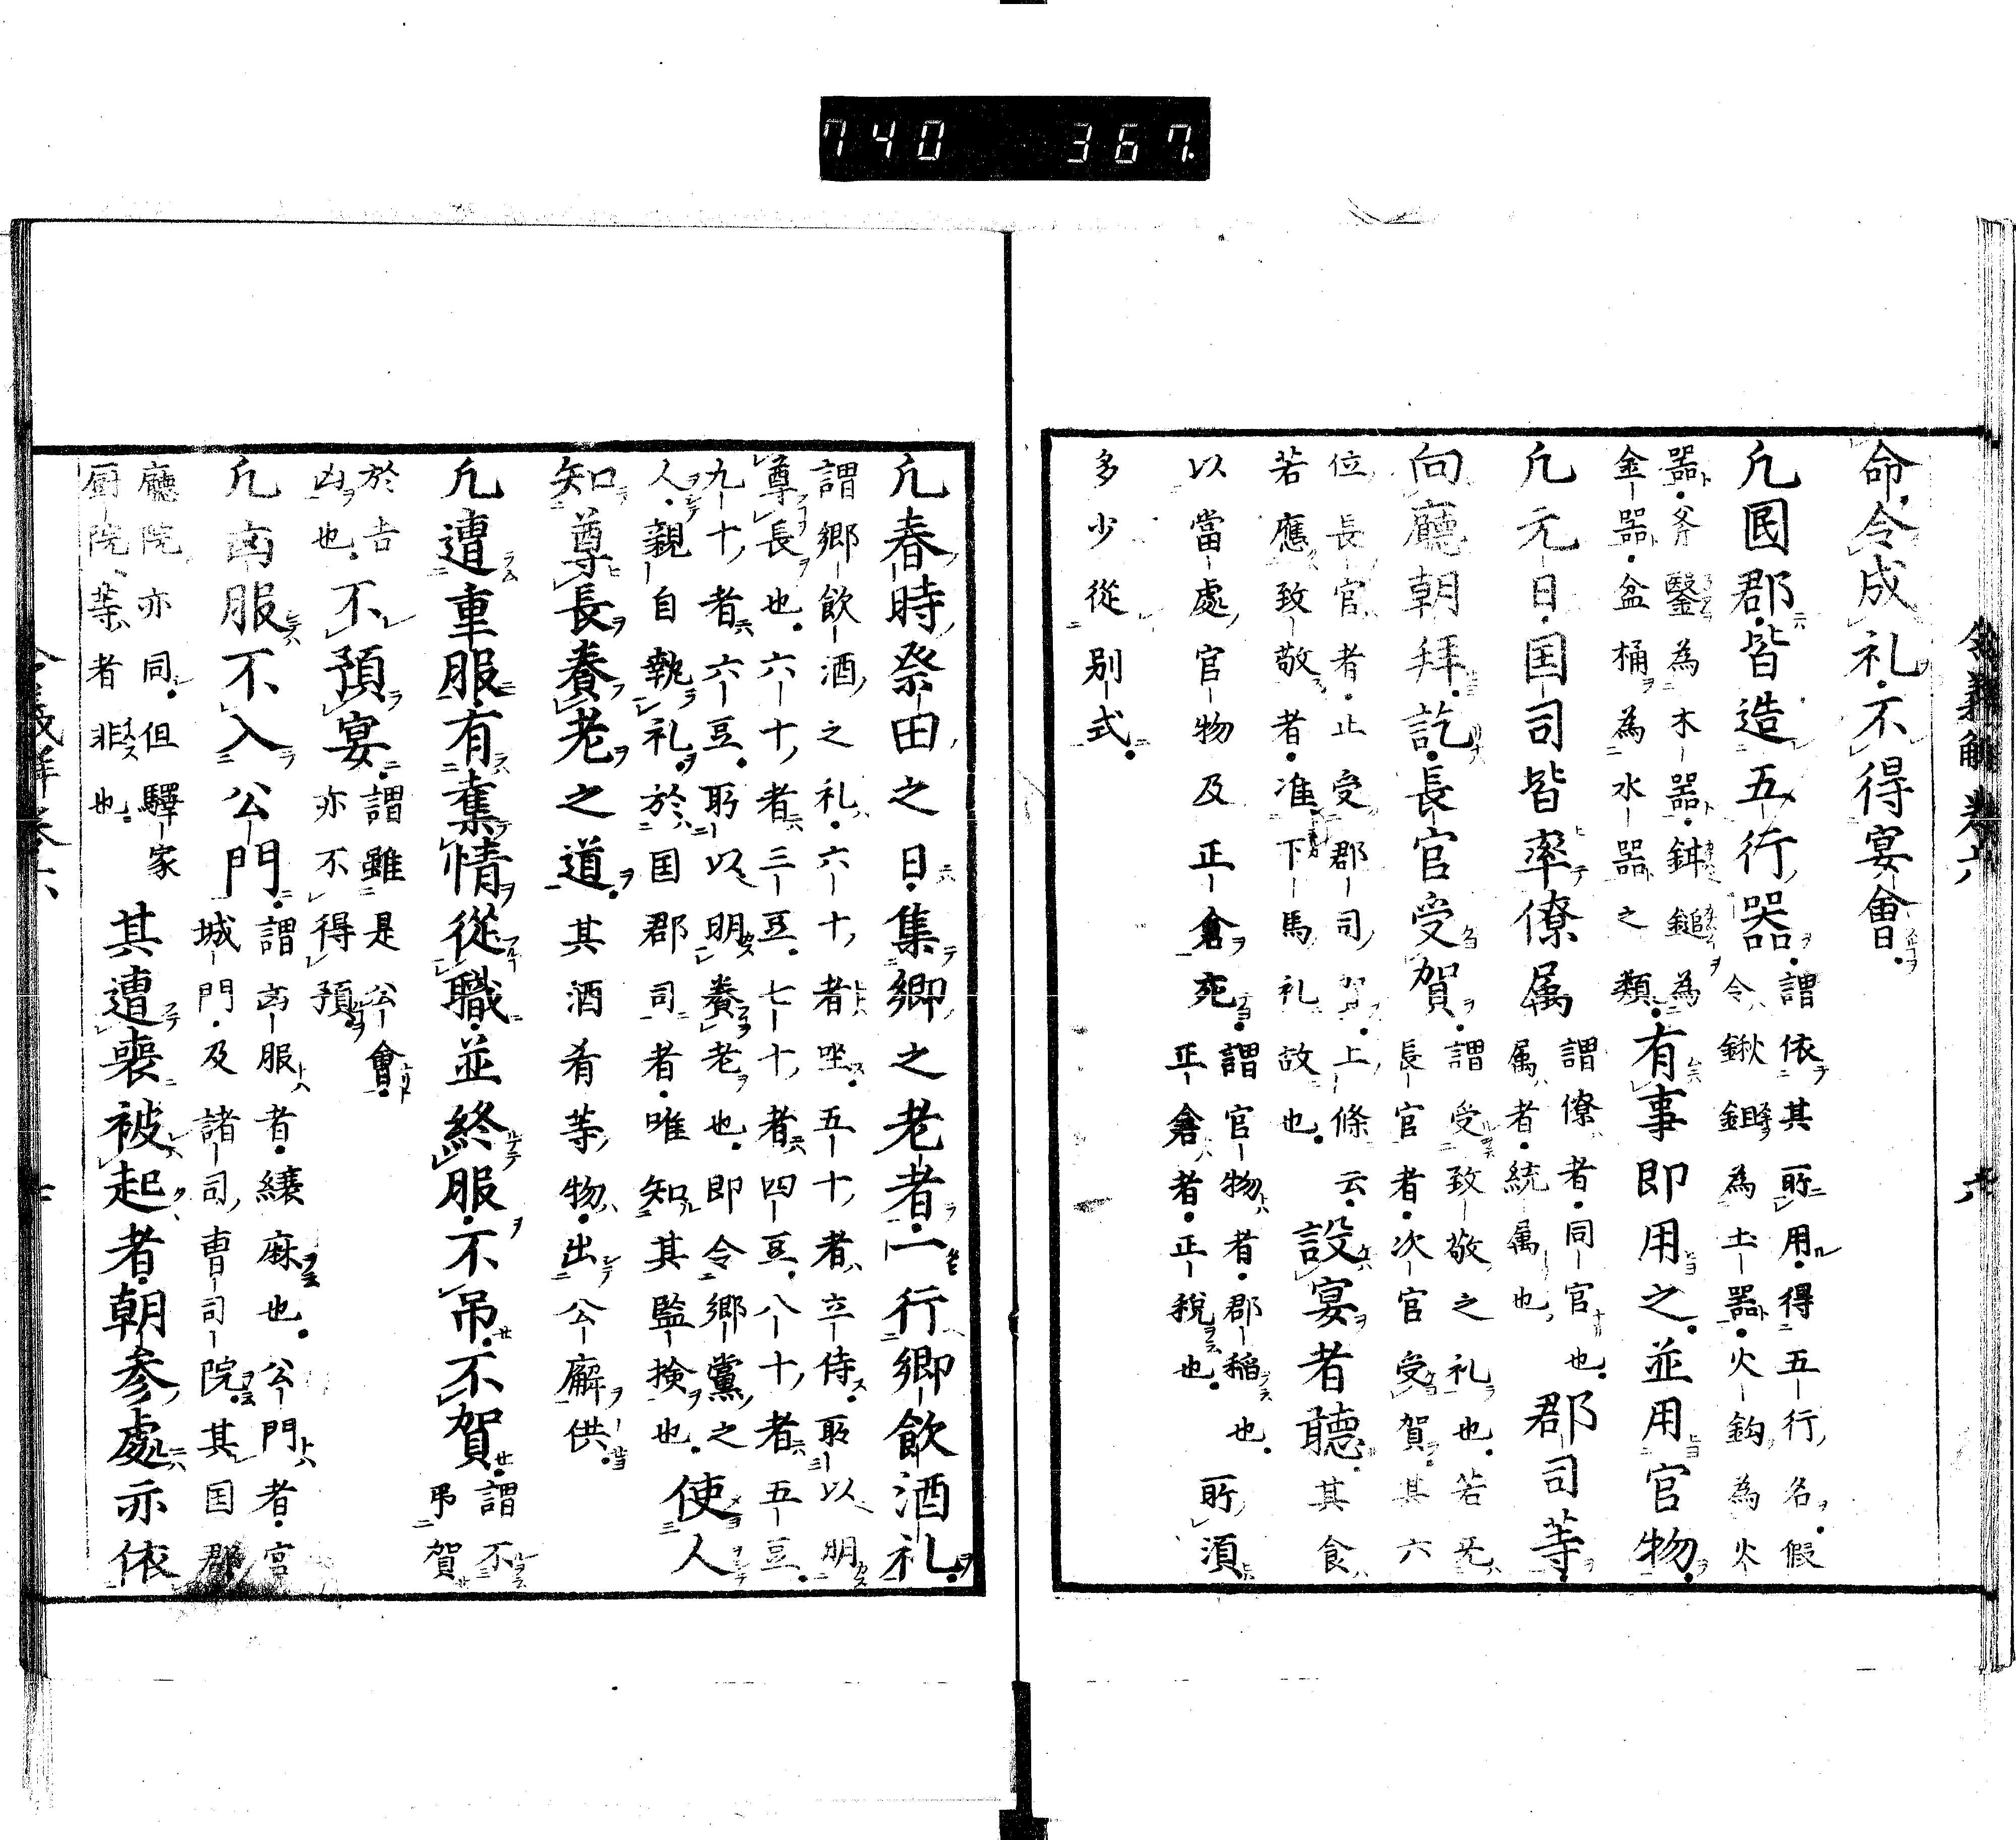 740 367.
命令成礼不得宴會
凢國郡皆造五行器謂依其所用得五行名假
令鍬鉏為土器火鈎為火
器斧鑿為木器鉡鎚為
金器盆桶為水器之類有事即用之並用官物
凢元日国司皆率僚属謂僚者同官也
属者統属也郡司等
向廳朝拜訖長官受賀謂受致敬之礼也若无
長官者次官受賀其六
位長官者止受郡司賀上條云
若應致敬者准下馬礼故也設宴者聴其食
以當處官物及正倉充謂官物者郡稲也
正倉者正税也所須
多少従别式
令義解 巻六 六
凢春時祭田之日集郷之老者一行郷飲酒礼
謂郷飲酒之礼六十者坐五十者立侍所以明
尊長也六十者三豆七十者四豆八十者五豆
九十者六豆所以明養老也即令郷黨之
人親自執礼於国郡司者唯知其監撿也使人
知尊長養老之道其酒肴等物出公廨供
凢遭重服有奪情從職並終服不吊不賀謂不
弔賀
於吉
凶也不預宴謂雖是公會
亦不得預
凢凶服不入公門謂凶服者縗麻也公門者宮
城門及諸司曹司院其国郡
廳院亦同但驛家
厨院等者非也其遭喪被起者朝参處亦依
令義解巻六 七